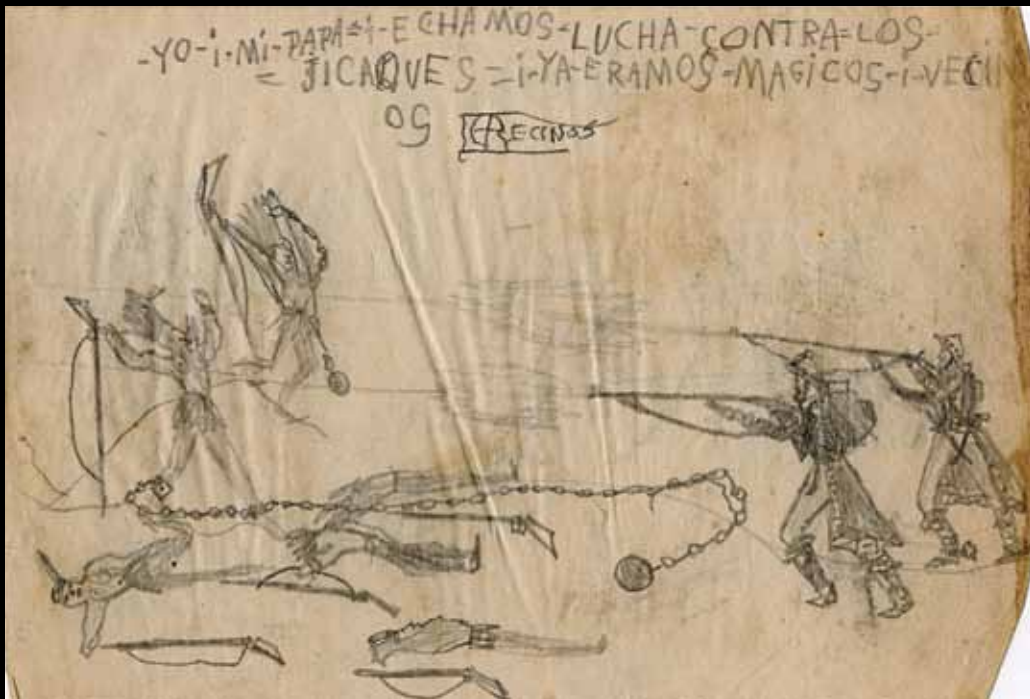 -YO-i-Mi-PAPA=i-ECHAMOS-LUCHA-CONTRA=LOS-
= JICAQUES=i-YA-ERAMOS-MAGICOS-i-VECIN
OS RECINOS